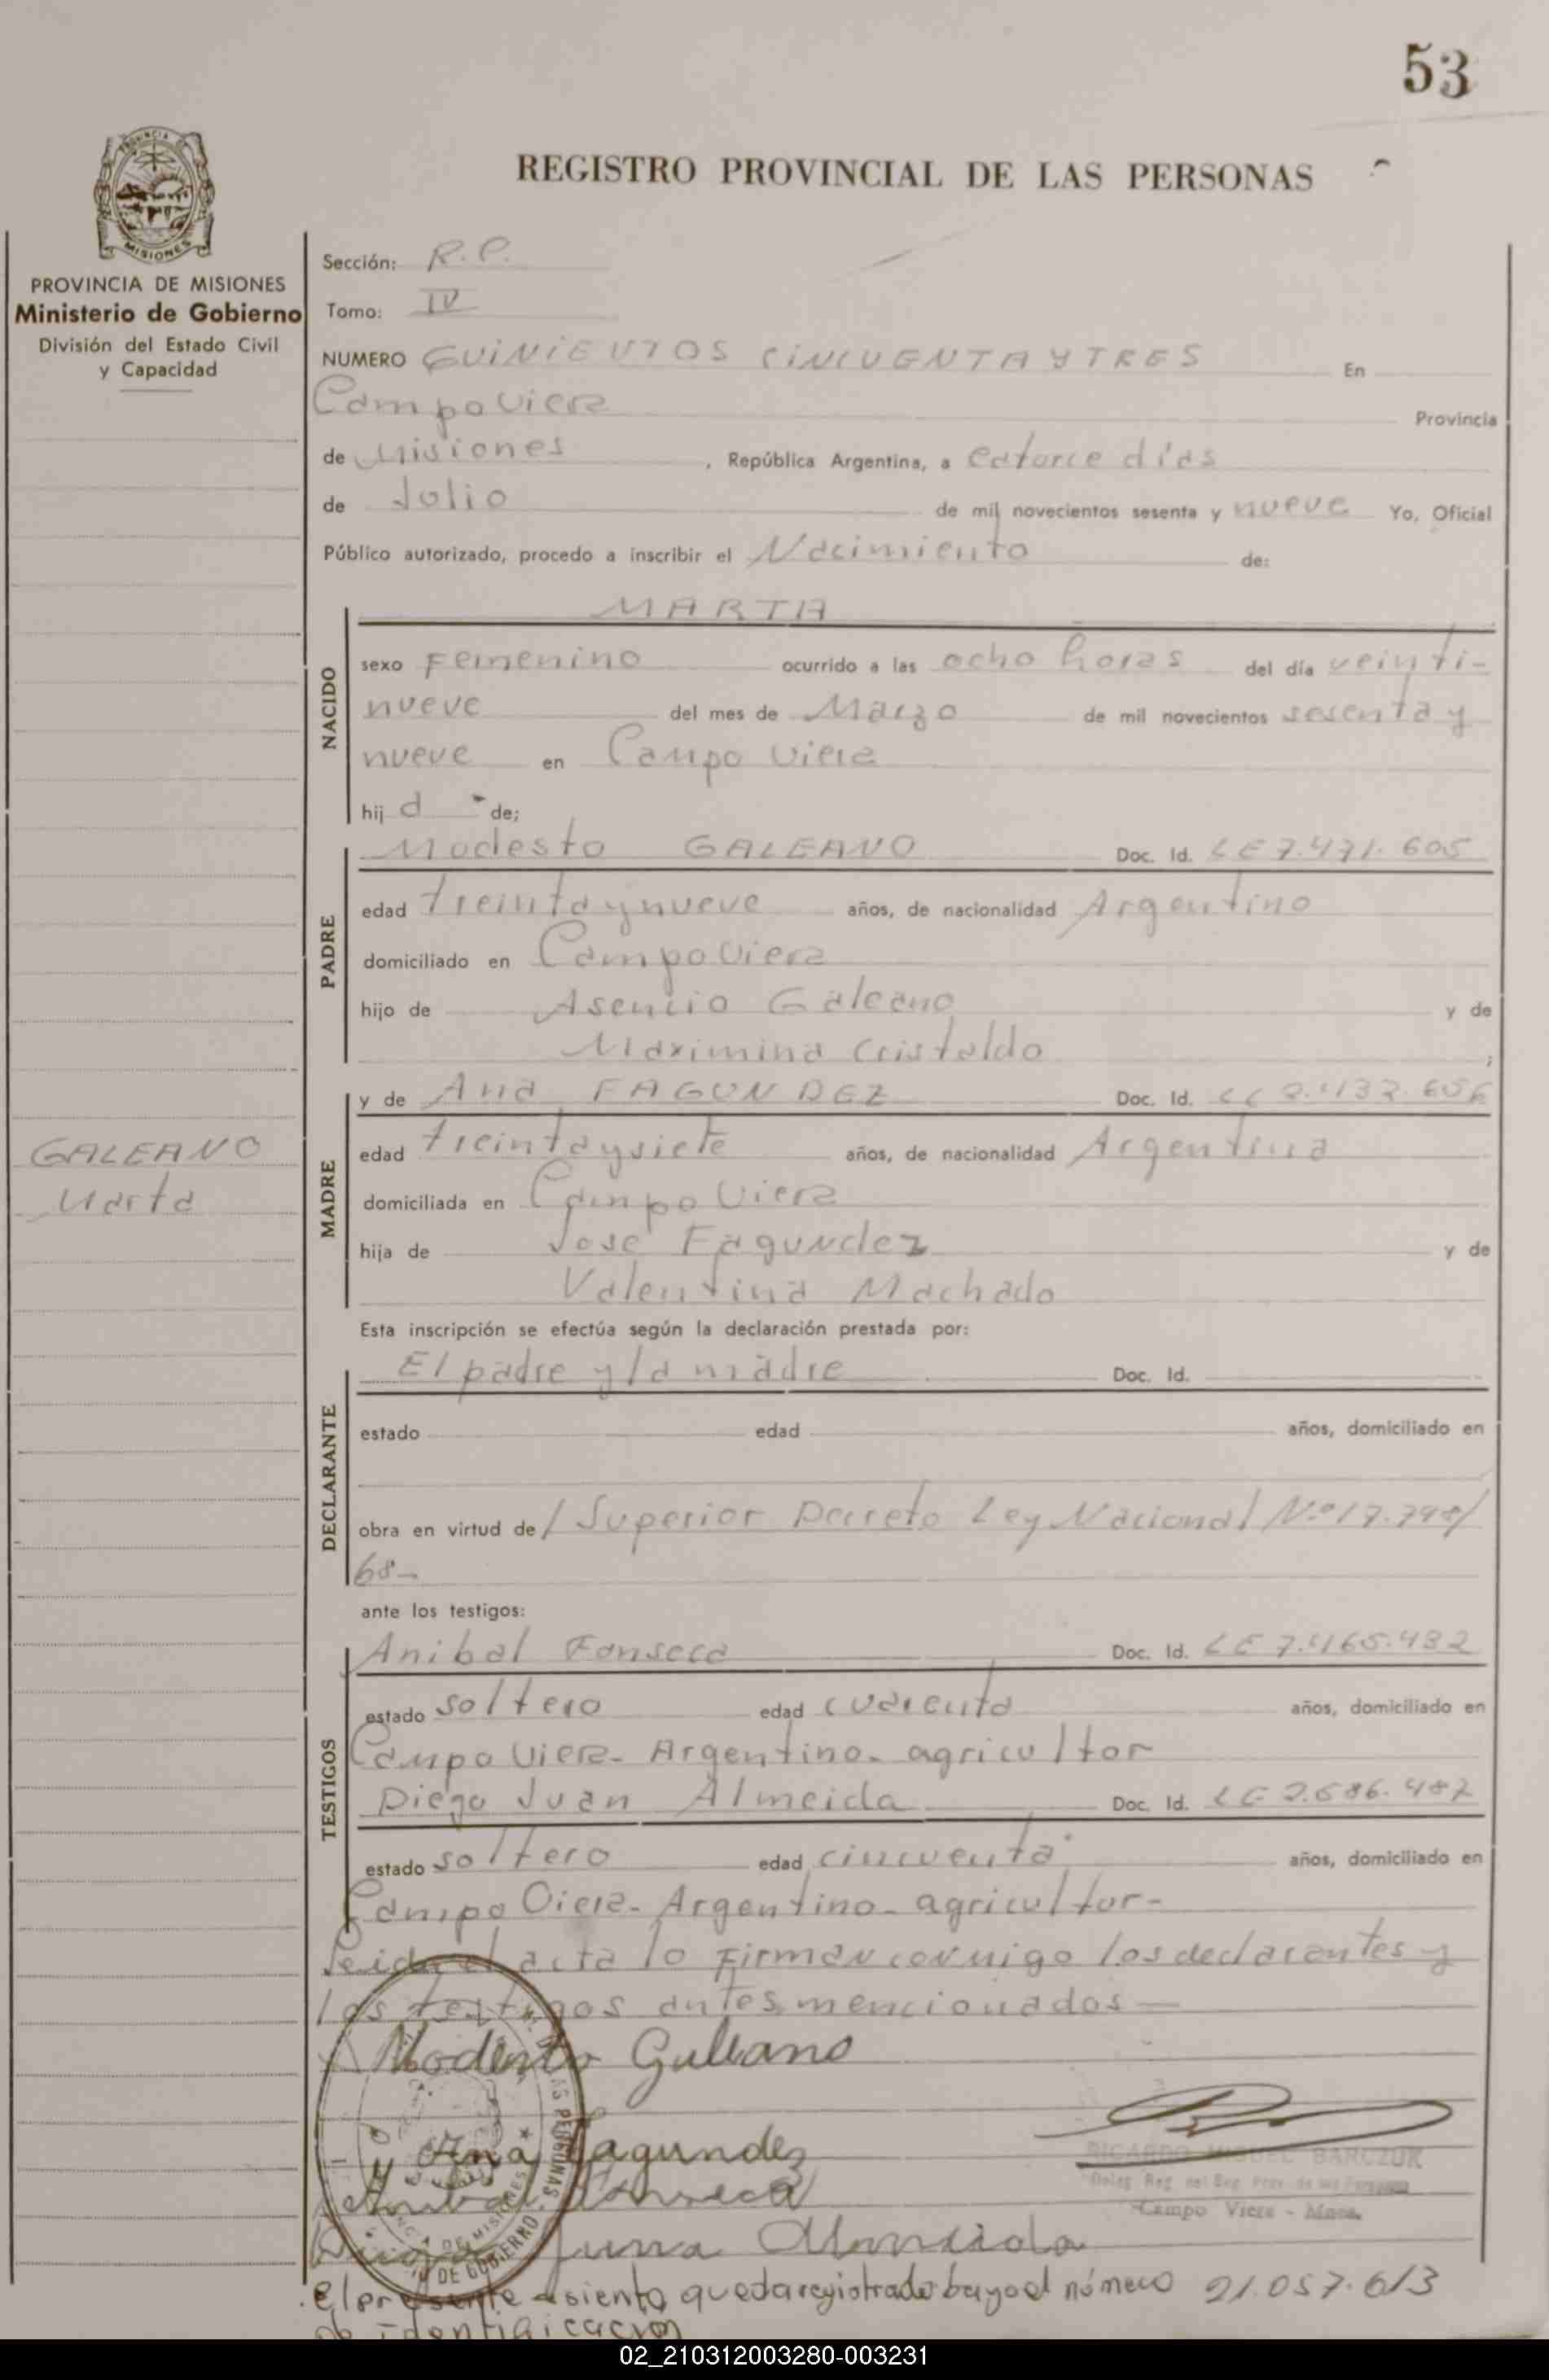 53
REGISTRO PROVINCIAL DE LAS PERSONAS
PROVINCIA DE MISIONES
Ministerio de Gobierno
División del Estado Civil
y Capacidad
Sección: R.P.
Tomo: IV
NUMERO QUINIENTOS CINCUENTA Y TRES En
Campo Viera Provincia
de Misiones, República Argentina, a catorce días
de Julio de mil novecientos sesenta y nueve Yo, Oficial
Público autorizado, procedo a inscribir el Nacimiento de:
NACIDO
MARTA
sexo Femenino ocurrido a las ocho horas del día veinti-
nueve del mes de Marzo de mil novecientos sesenta y
nueve en Campo Viera
hij a de;
PADRE
Modesto GALEANO Doc. Id. LE 7.471.605
edad treinta y nueve años, de nacionalidad Argentino
domiciliado en Campo Viera
hijo de Asencio Galeano y de
Maximina Cristaldo ;
MADRE
y de Ana FAGUNDEZ Doc. Id.
edad treinta y siete años, de nacionalidad Argentina
domiciliada en Campo Viera
hija de José Fagundez y de
Valentina Machado
GALEANO
Marta
Esta inscripción se efectúa según la declaración prestada por:
DECLARANTE
El padre y la madre Doc. Id.
estado edad años, domiciliado en
obra en virtud de / Superior Decreto Ley Nacional Nº 17.
68-
ante los testigos:
TESTIGOS
Anibal Fonseca Doc. Id. LE
estado soltero edad cuarenta años, domiciliado en
Campo Viera- Argentino- agricultor
Diego Juan Almeida Doc. Id. LE
estado soltero edad cincuenta años, domiciliado en
Campo Viera- Argentino- agricultor-
Leida el acta lo Firman conmigo los declarantes y
los testigos antes mencionados
Modesto Galeano
Ana Fagundez
Anibal Fonseca
RICARDO MIGUEL BARCZUK
Campo Viera - Mnes.
Diego Juan Almeida
El presente asiento queda registrado bajo el número 21.057.613
de identificacion
02_210312003280-003231